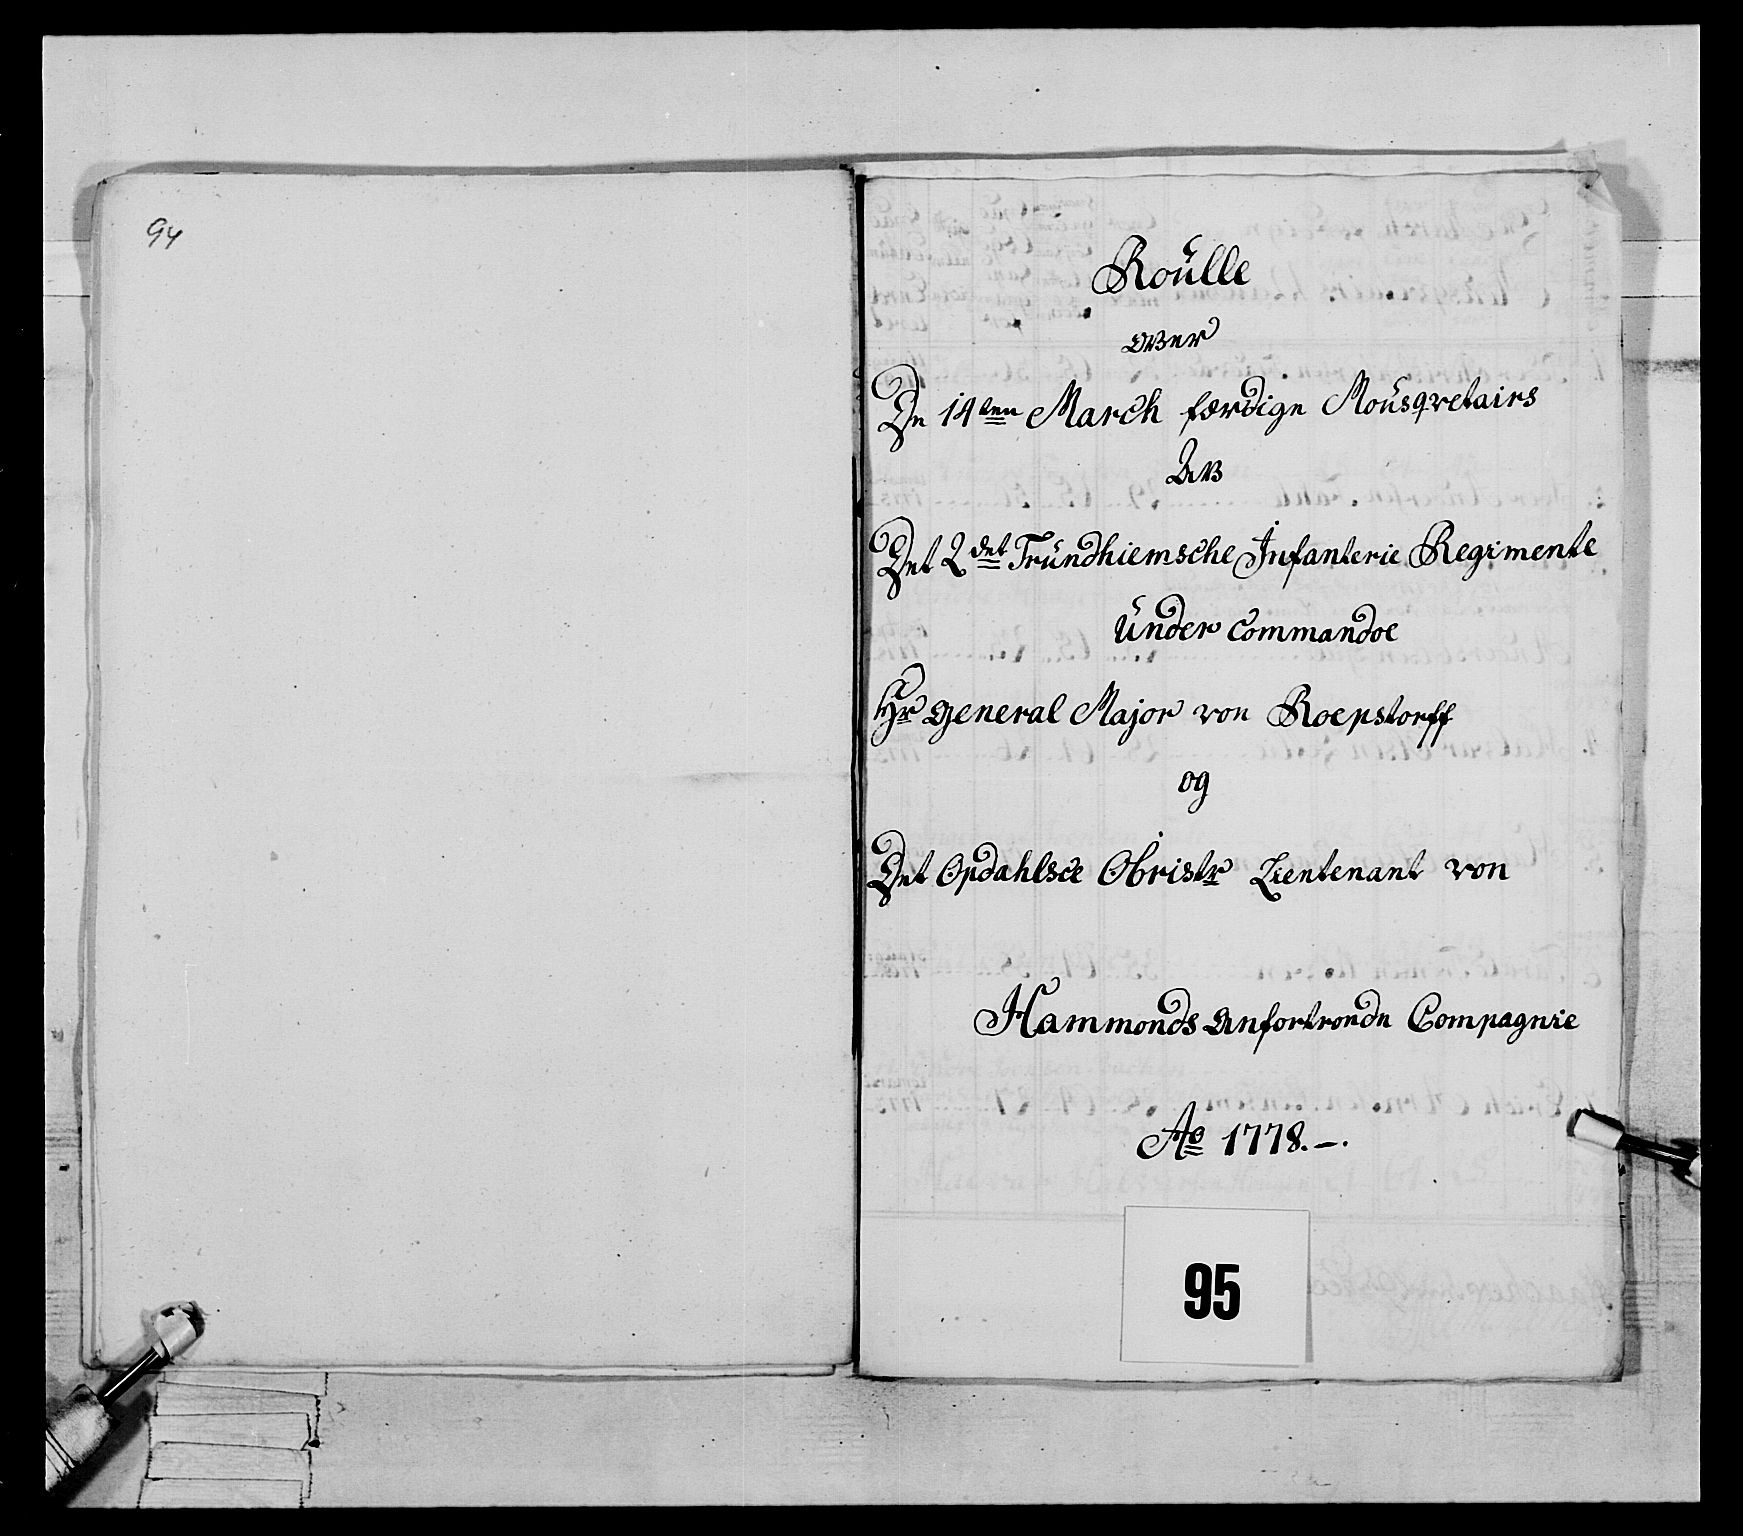 94
Roülle
over
De 14ten March færdige Mousqvetairs
Av
Det 2det Tründhiemsche Infanterie Regimente
Under Commandoe
Hr General Major von Roepstorff
og
Det Opdahlsce Obristr Lientenant von
Hammonds anfortronde Compagnie
Ao 1778.-.
95